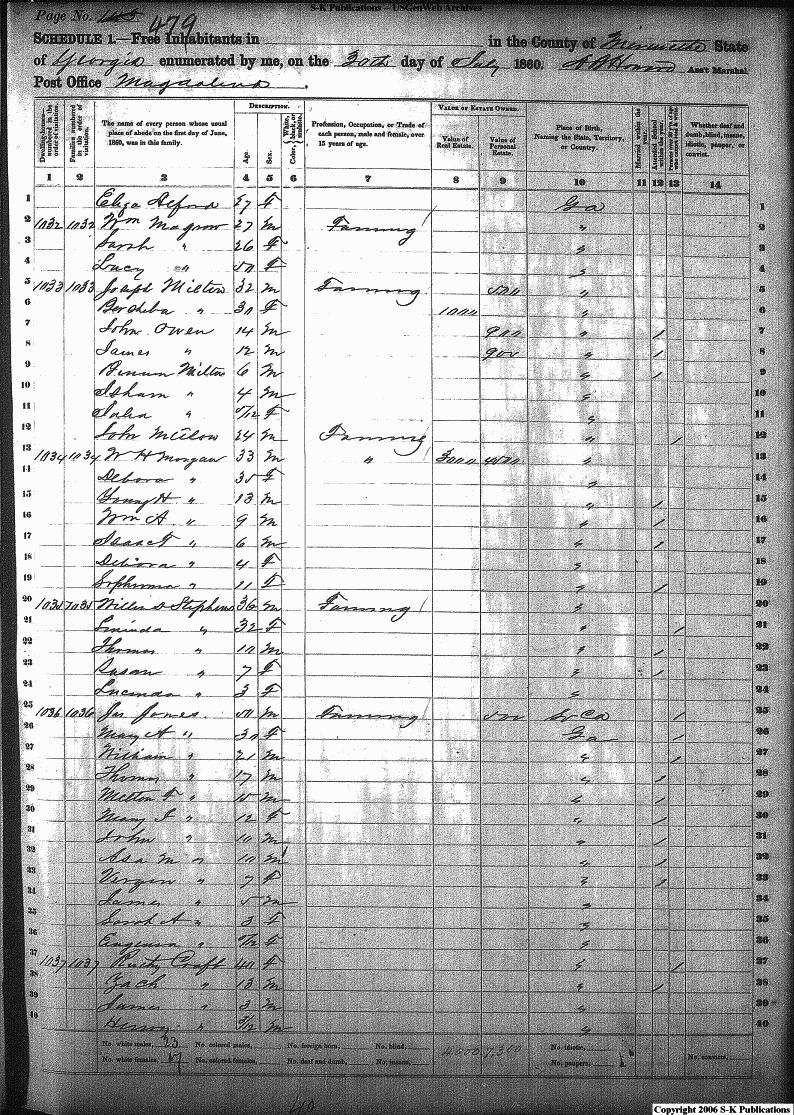 S-K Publications – USGenWeb Archives
Page No. 145 479
SCHEDULE 1.—Free Inhabitants in in the County of Meriwether State
of Georgia enumerated by me, on the 30th day of July 1860. Howard Ass't Marshal
Post Office Magdalena.
DESCRIPTION. VALUE OF ESTATE OWNED.
Dwelling-houses—numbered in the order of visitation. Families numbered in the order of visitation. The name of every person whose usual place of abode on the first day of June, 1860, was in this family. Age. Sex. Color, White, black, or mulatto. Profession, Occupation, or Trade of each person, male and female, over 15 years of age. Value of Real Estate. Value of Personal Estate. Place of Birth, Naming the State, Territory, or Country. Married within the year. Attended School within the year. Whether deaf and dumb, blind, insane, idiotic, pauper, or convict.
1 2 3 4 5 6 7 8 9 10 11 12 13 14
1 Eliza Alford 27 F Ga 1
2 1032 1032 Wm Magrow 27 M Farming " 2
3 Sarah " 26 F " 3
4 Lucy " F " 4
5 1033 1033 Joseph Milton 32 M Farming 500 " 5
6 " 30 F 1000 " 6
7 John Owen 14 M 900 " / 7
8 James " 12 M 900 " / 8
9 Milton 6 M " / 9
10 Isham " 4 M " 10
11 " /12 F " 11
12 John 24 M Farming " / 12
13 1034 1034 W H Morgan 33 M " 3000 " 13
14 Debora " 35 F " 14
15 Young H " 13 M " / 15
16 Wm A. " 9 M " / 16
17 Isaac " 6 M " / 17
18 Debora " 4 F " 18
19 " 11 F " / 19
20 1035 1035 Stephens 36 M Farming " 20
21 " 32 F " / 21
22 Thomas " 10 M " / 22
23 Susan " 7 F " / 23
24 Lucinda " 3 F " 24
25 1036 1036 Jas Jones. 50 M Farming 500 So Ca / 25
26 Mary A " 30 F Ga / 26
27 William " 21 M " / 27
28 Thomas " 17 M " / 28
29 Milton F " 15 M " / 29
30 Mary " 12 F " / 30
31 John " 10 M " / 31
32 Asa M " 10 M " / 32
33 " 7 F " / 33
34 James " 5 M " 34
35 Sarah A " 3 F " 35
36 " /12 F " 36
37 1037 1037 Craft 40 F " / 37
38 Zach " 13 M " / 38
39 James " 3 M " 39
40 Henry " /12 M " 40
No. white males, 23 No. colored males, No. foreign born, No. blind, 4000 7,300 No. idiotic,
No. white females, 17 No. colored females, No. deaf and dumb, No. insane, No. paupers, No. convicts,
40
Copyright 2006 S-K Publications